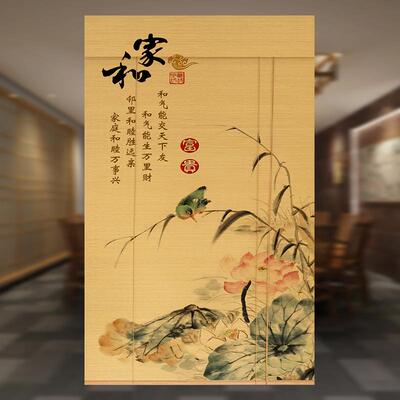 家和
和气能交天下友
和气能生万里财
邻里和睦胜远亲
家庭和睦万事兴
富贵